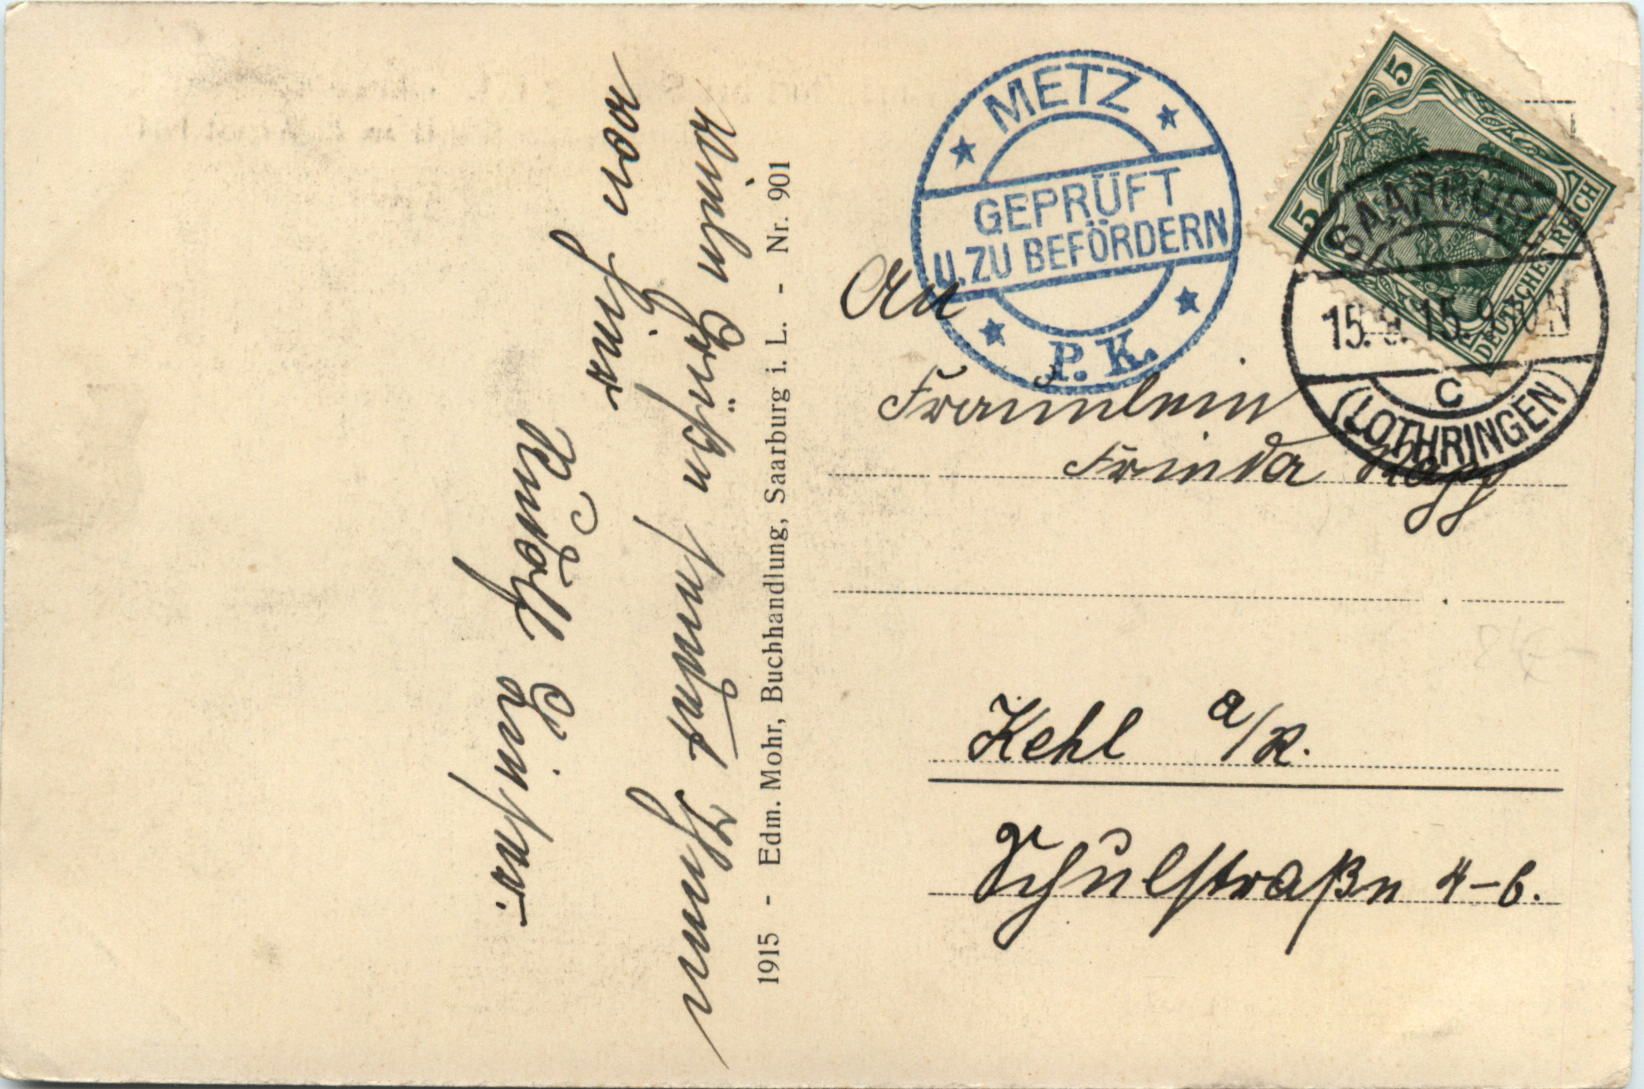 METZ
GEPRÜFT
U. ZU BEFÖRDERN
P. K.
5
5
DEUTSCHES REICH
SAARBURG
15.9.15. 9-10 N
C
(LOTHRINGEN)
An
Fräulein
Frieda
Kehl a/R.
Schulstraße 4-6.
1915 - Edm. Mohr, Buchhandlung, Saarburg i. L. - Nr. 901
Grüße sendet Ihnen
von hier aus
Rudolf